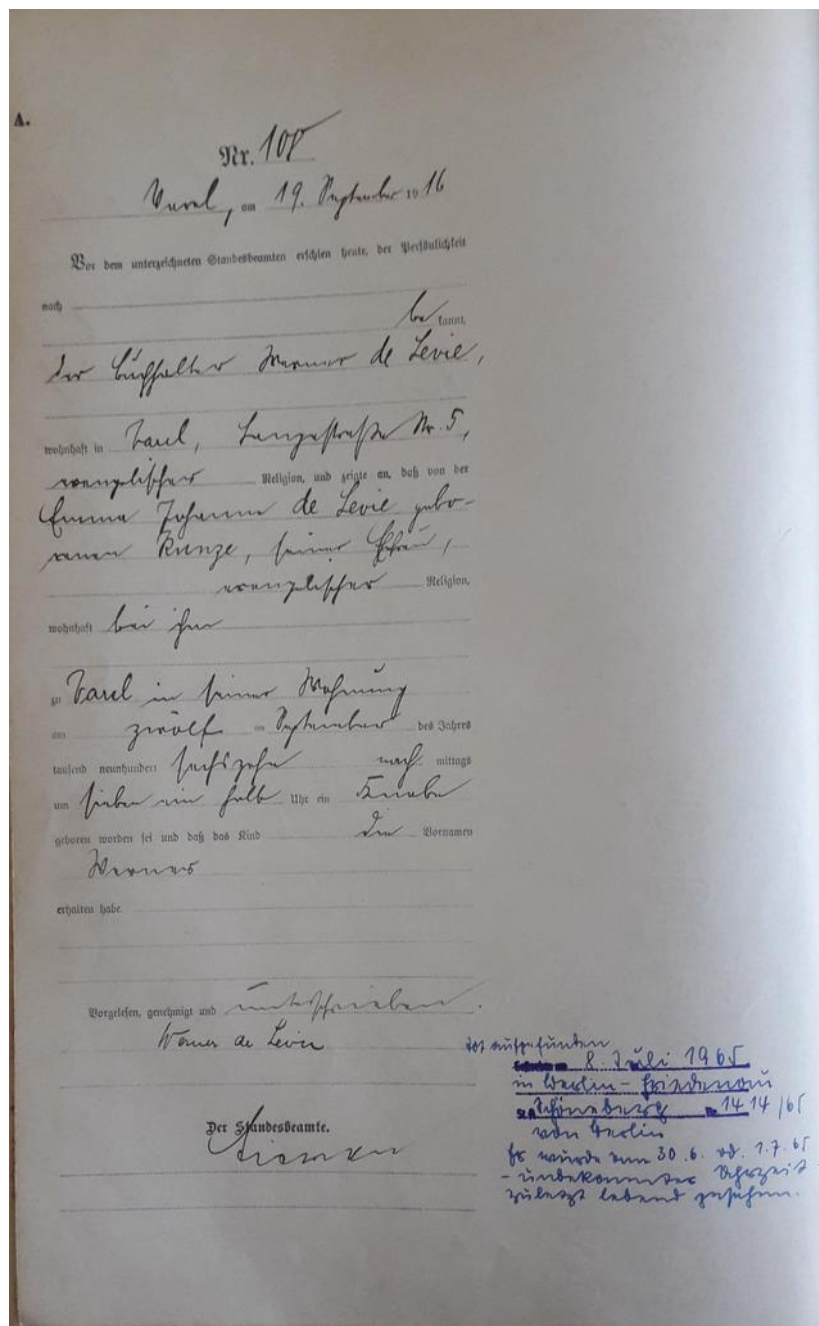 A.
Nr. 108
Varel, am 19. September 1916
Vor dem unterzeichneten Standesbeamten erschien heute, der Persönlichkeit
nach
bekannt,
der Buchhalter Werner de Levie,
wohnhaft in Varel, Langestraße Nr. 5,
evangelischer Religion, und zeigte an, daß von der
Emma Johanne de Levie gebo-
renen Kunze, seiner Ehefrau,
evangelischer Religion,
wohnhaft bei ihm
zu Varel in seiner Wohnung
am zwölf ten September des Jahres
tausend neunhundert sechszehn nach mittags
um sieben ein halb Uhr ein Knabe
geboren worden sei und daß das Kind die Vornamen
Werner
erhalten habe.
Vorgelesen, genehmigt und unterschrieben.
Werner de Levie
Der Standesbeamte.
tot aufgefunden
8. Juli 1965
in Berlin-Friedenau
St.A. Schöneberg Nr. 1414/65
von Berlin
Er wurde vom 30.6. od. 1.7.65
- unbekannter Uhrzeit -
zuletzt lebend gesehen.